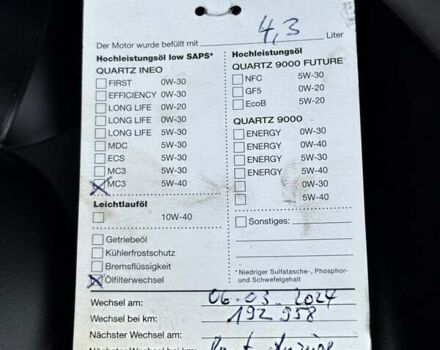 Der Motor wurde befüllt mit 4,3 Liter
Hochleistungsöl low SAPS*
QUARTZ INEO
FIRST 0W-30
EFFICIENCY 0W-30
LONG LIFE 0W-20
LONG LIFE 0W-30
LONG LIFE 5W-30
MDC 5W-30
ECS 5W-30
MC3 5W-30
MC3 5W-40
Leichtlauföl
10W-40
Getriebeöl
Kühlerfrostschutz
Bremsflüssigkeit
Ölfilterwechsel
Hochleistungsöl
QUARTZ 9000 FUTURE
NFC 5W-30
GF5 0W-20
EcoB 5W-20
QUARTZ 9000
ENERGY 0W-30
ENERGY 0W-40
ENERGY 5W-30
ENERGY 5W-40
0W-30
5W-40
Sonstiges:
*Niedriger Sulfatasche-, Phosphor-
und Schwefelgehalt
Wechsel am: 06.03.2024
Wechsel bei km: 192 958
Nächster Wechsel am:
Nächster Wechsel bei km: